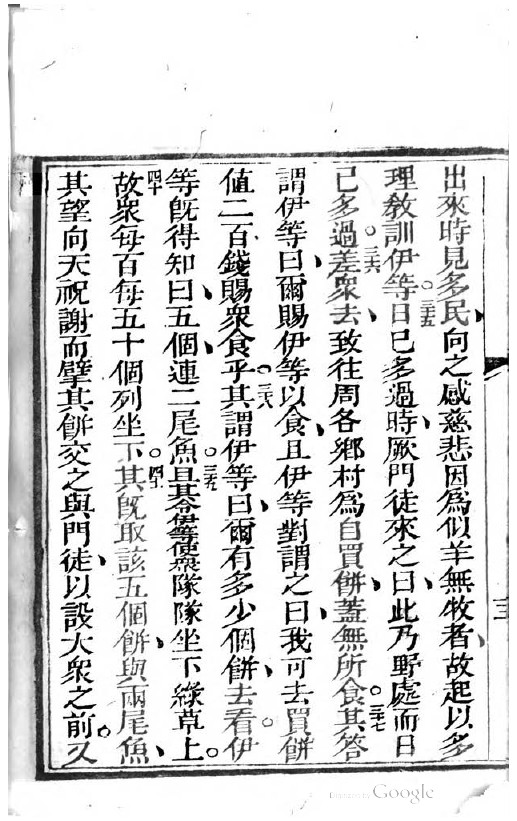 出來時見多民向之感慈悲因爲似羊無牧者故起以多
理教訓伊等○三五日已多過時厥門徒來之曰此乃野處而日
已多過○三六差衆去致往周各鄕村爲自買餅蓋無所食○三七其答
謂伊等曰爾賜伊等以食且伊等對謂之曰我可去買餅
値二百錢賜衆食乎○三八其謂伊等曰爾有多少個餅去看○伊
等旣得知曰五個連二尾魚○三九且其令伊等使衆隊隊坐下綠草上○
四十故衆每百每五十個列坐下○四一其旣取該五個餅與兩尾魚
其望向天祝謝而擘其餅交之與門徒以設大衆之前又
Google